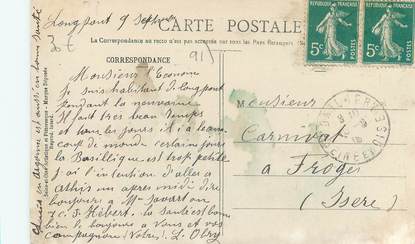 Longpont 9 Septembre
CARTE POSTALE
La Correspondance au recto n'est pas acceptée par tous les Pays Etrangers
CORRESPONDANCE
Monsieur l'Econome
je suis habitant de Longpont
pendant la neuvaine
il fait très beau temps
et tous les jours il i a beau
coup de monde certains jours
la Basilique est trop petite
j'ai l'intention d'aller a
athis un apres midi dire
bonjours a M. Savart ou
S. Hébert. la santé est bonne
bien le bonjours a vous et vos
compagnons Votre L. Obry
5c 5c
Monsieur
Carnivat
a Froges
(Isere)